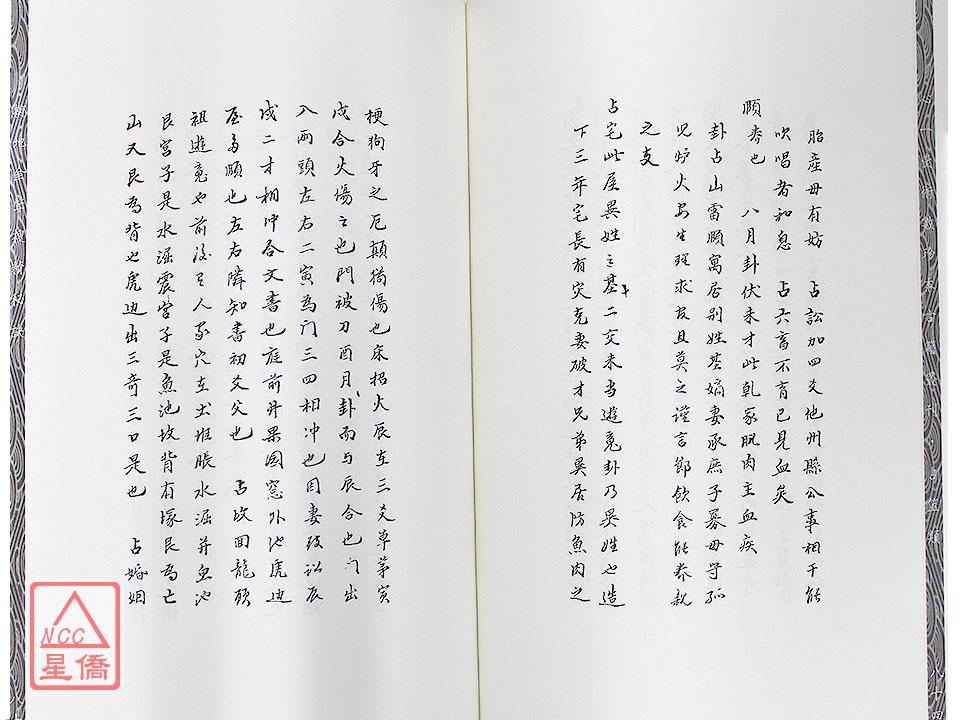 胎產毋有妨　占訟加四爻他州縣公事相干能
吹唱者和息　占六畜不育已見血矣
頤 養也　八月卦伏未才此乾家脫肉主血疾
卦占山雷頤寓居別姓基嫡妻承庶子寡母守孤
兒炉火安生理求官且莫之謹言節飲食能養敖
之支
占宅此屋異姓之基二爻未当遊䰟卦乃異姓也造
下三年宅長有灾克妻破才兄弟異居防魚肉之
梗狗牙之厄顛撲傷也床招火辰在三爻草茅寅
戌合火傷之也門被刀酉月卦而与辰合也门出
入兩頭左右二寅為门三四相冲也因妻致訟辰
戌二才相冲合文書也庭前井果園窓外池虎边
屋多頤也左右隣知書初爻父也　占坟回龍顾
祖遊䰟也前後有人家穴在土堆脹水湿井魚池
艮宮子是水湿震宮子是魚池坟背有塚艮為亡
山又艮為背也虎边出三奇三口是也　占婚姻
NCC
星僑